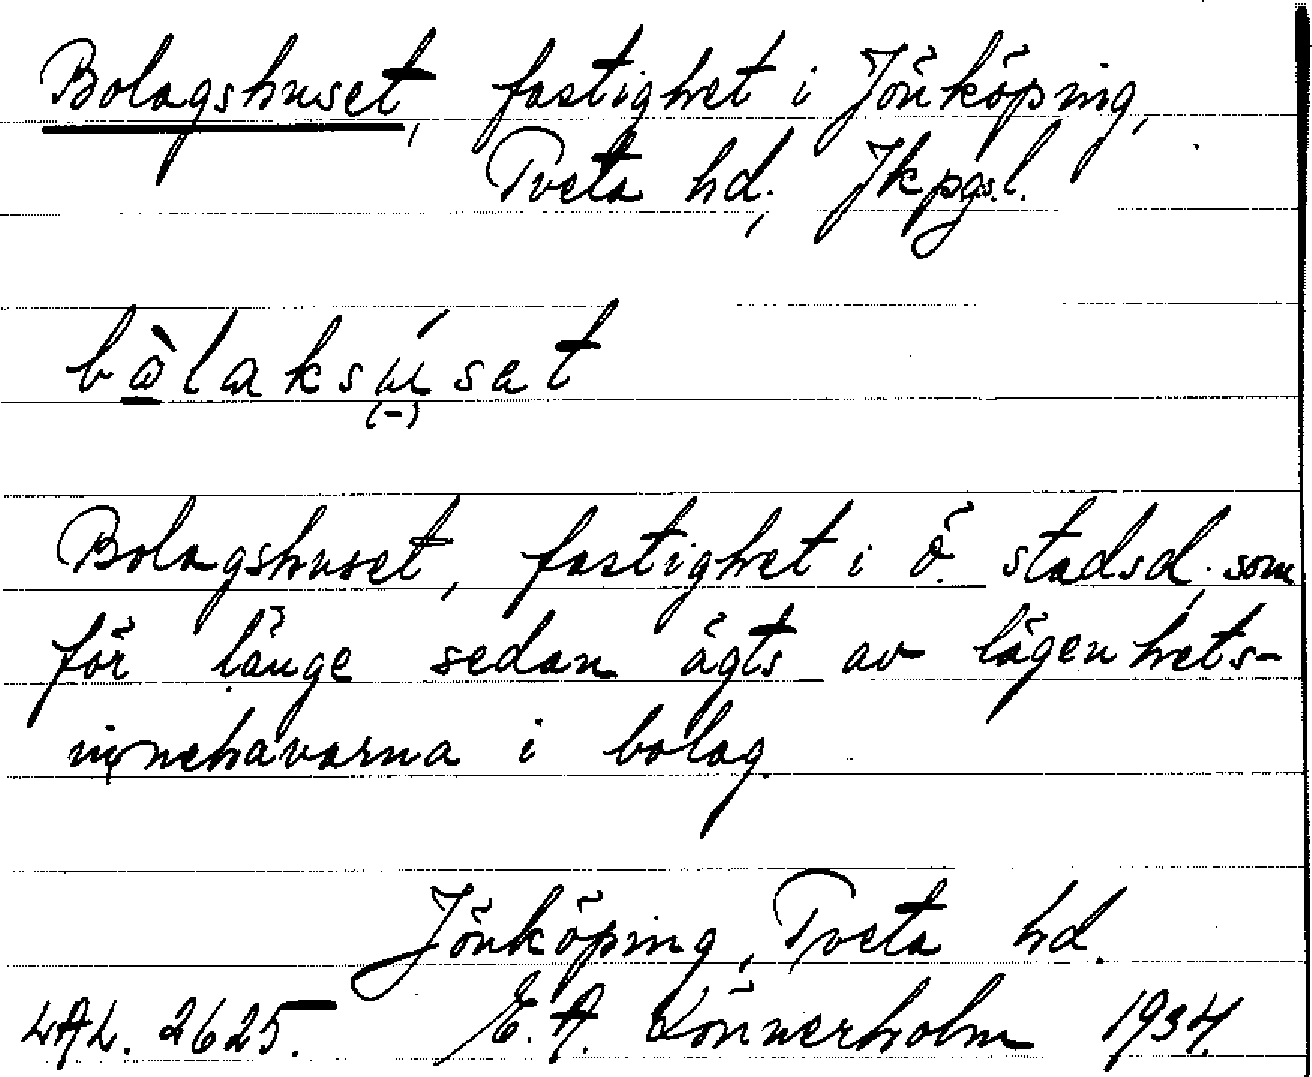 Bolagshuset, fastighet i Jönköping,
Tveta hd., Jkpgs l.
bòlaksúsat
(-)
Bolagshuset, fastighet i Ö. stadsd. som
för länge sedan ägts av lägenhets-
innehavarna i bolag.
Jönköping, Tveta hd.
LAL. 2625. E. A. Lönnerholm 1934.